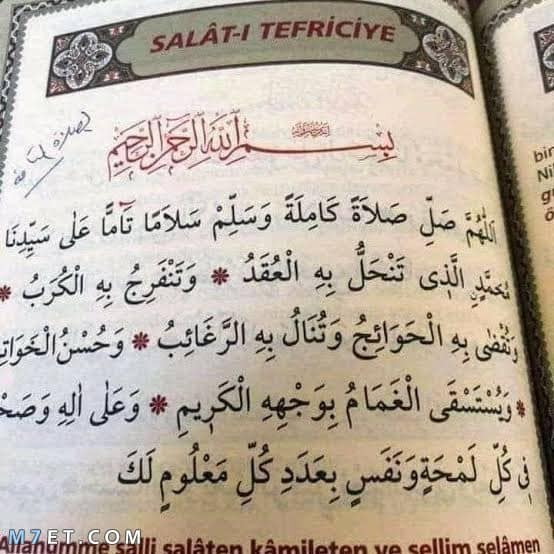 SALÂT-I TEFRİCİYE
بِسْمِ اللّٰهِ الرَّحْمٰنِ الرَّحِيمِ
اَللّٰهُمَّ صَلِّ صَلَاةً كَامِلَةً وَسَلِّمْ سَلَامًا تَامًّا عَلٰى سَيِّدِنَا
مُحَمَّدٍ الَّذِى تَنْحَلُّ بِهِ الْعُقَدُ * وَتَنْفَرِجُ بِهِ الْكُرَبُ *
وَتُقْضٰى بِهِ الْحَوَائِجُ وَتُنَالُ بِهِ الرَّغَائِبُ * وَحُسْنُ الْخَوَات
* وَيُسْتَسْقَى الْغَمَامُ بِوَجْهِهِ الْكَرِيمِ * وَعَلٰى اٰلِهِ وَصَحْ
فِى كُلِّ لَمْحَةٍ وَنَفَسٍ بِعَدَدِ كُلِّ مَعْلُومٍ لَكَ
Allahümme salli salâten kâmileten ve sellim selâmen
bin
Ni
M7ET.COM